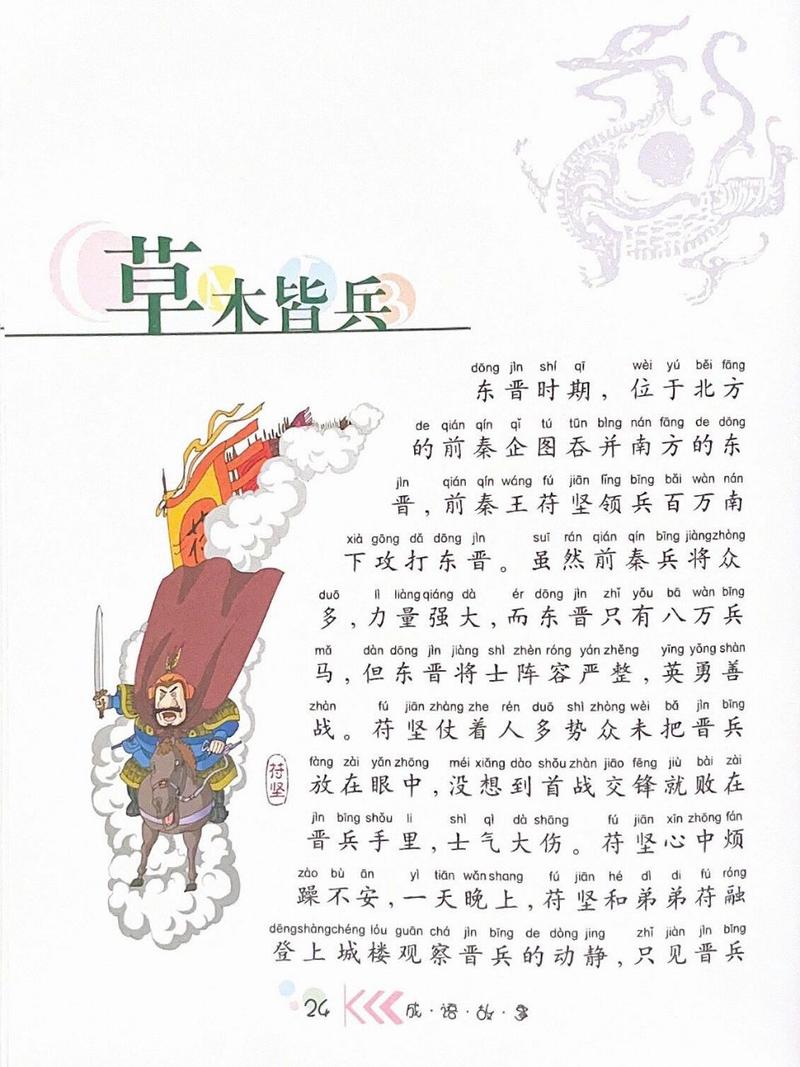 草木皆兵
dōng jìn shí qī wèi yú běi fāng
东晋时期，位于北方
de qián qín qǐ tú tūn bìng nán fāng de dōng
的前秦企图吞并南方的东
jìn qián qín wáng fú jiān lǐng bīng bǎi wàn nán
晋，前秦王苻坚领兵百万南
xià gōng dǎ dōng jìn suī rán qián qín bīng jiàng zhòng
下攻打东晋。虽然前秦兵将众
duō lì liàng qiáng dà ér dōng jìn zhǐ yǒu bā wàn bīng
多，力量强大，而东晋只有八万兵
mǎ dàn dōng jìn jiàng shì zhèn róng yán zhěng yīng yǒng shàn
马，但东晋将士阵容严整，英勇善
zhàn fú jiān zhàng zhe rén duō shì zhòng wèi bǎ jìn bīng
战。苻坚仗着人多势众未把晋兵
fàng zài yǎn zhōng méi xiǎng dào shǒu zhàn jiāo fēng jiù bài zài
放在眼中，没想到首战交锋就败在
jìn bīng shǒu li shì qì dà shāng fú jiān xīn zhōng fán
晋兵手里，士气大伤。苻坚心中烦
zào bù ān yì tiān wǎn shang fú jiān hé dì di fú róng
躁不安，一天晚上，苻坚和弟弟苻融
dēng shàng chéng lóu guān chá jìn bīng de dòng jing zhǐ jiàn jìn bīng
登上城楼观察晋兵的动静，只见晋兵
苻坚
24 成·语·故·事